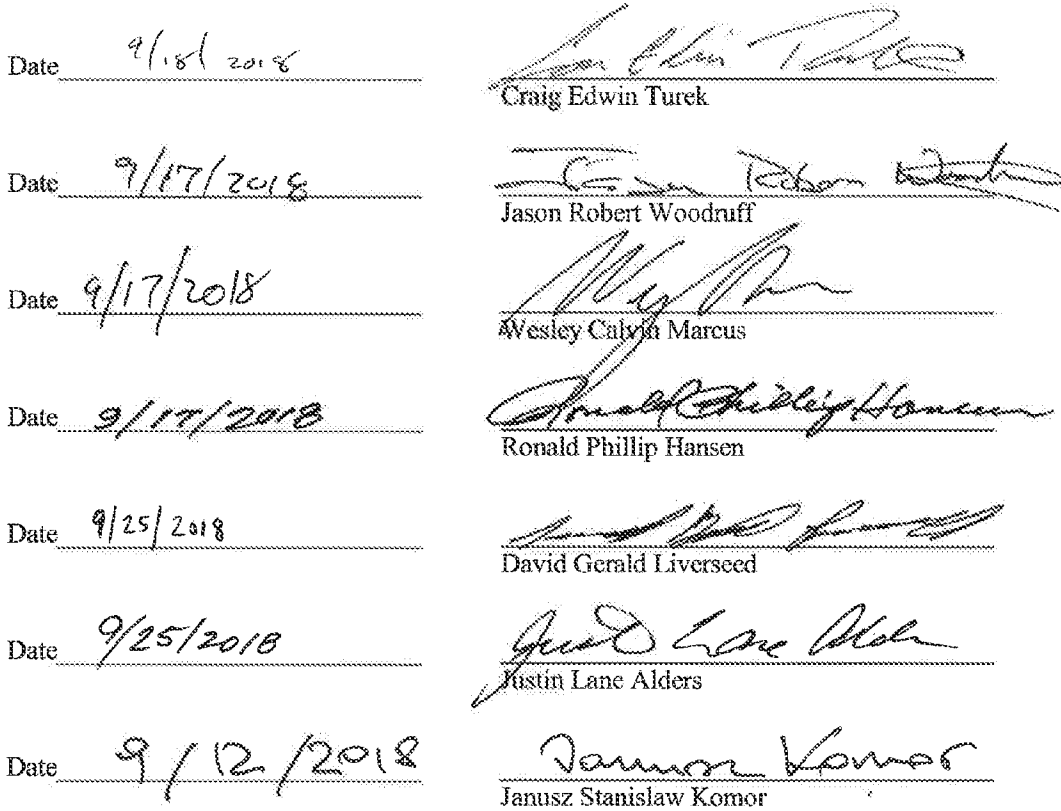 Date 9/18/2018
Craig Edwin Turek
Date 9/17/2018
Jason Robert Woodruff
Date 9/17/2018
Wesley Calvin Marcus
Date 9/17/2018 Ronald Phillip Hansen
Ronald Phillip Hansen
Date 9/25/2018
David Gerald Liverseed
Date 9/25/2018 Justin Lane Alders
Justin Lane Alders
Date 9/12/2018 Janusz Komor
Janusz Stanislaw Komor